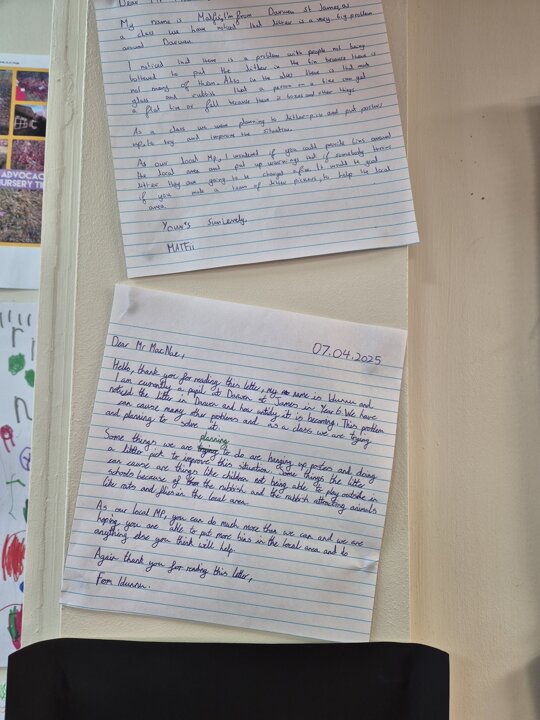 ADVOCAC
NURSERY T
My name is Matfii, I'm from Darwen st James, as
a class we have noticed that litter is a very big problem
around Darwen
I noticed that there is a problem with people not being
bothered to put the litter in the bin because there is
not many of them. Also in the there is that much
glass and rubbish that a person on a bike can get
a flat tire or fall because there is boxes and other things.
As a class we were planning to litter-pick and put posters
up to try and improve the situation.
As our local Mp, I wondered if you could provide bins around
the local area and put up warnings that if somebody throws
litter they are going to be charged after. It would be good
if you made a team of litter pickers, to help the local
area.
Your's sincerely,
MATFii
07.04.2025
Dear Mr MacNae,
Hello, thank you for reading this letter, my name is Idunnu and
I am currently a pupil at Darwen st James in Year 6. We have
noticed the litter in Darwen and how untidy it is becoming. This problem
can cause many other problems and as a class we are trying
and planning to solve it.
planning
Some things we are trying to do are hanging up posters and doing
a litter pick to improve this situation. Some things the litter
can cause are things like children not being able to play outside in
schools because of the rubbish and the rubbish attracting animals
like rats and flies in the local area.
As our local MP, you can do much more than we can and we are
hoping you are able to put more bins in the local area and do
anything else you think will help.
Again thank you for reading this letter,
From Idunnu.